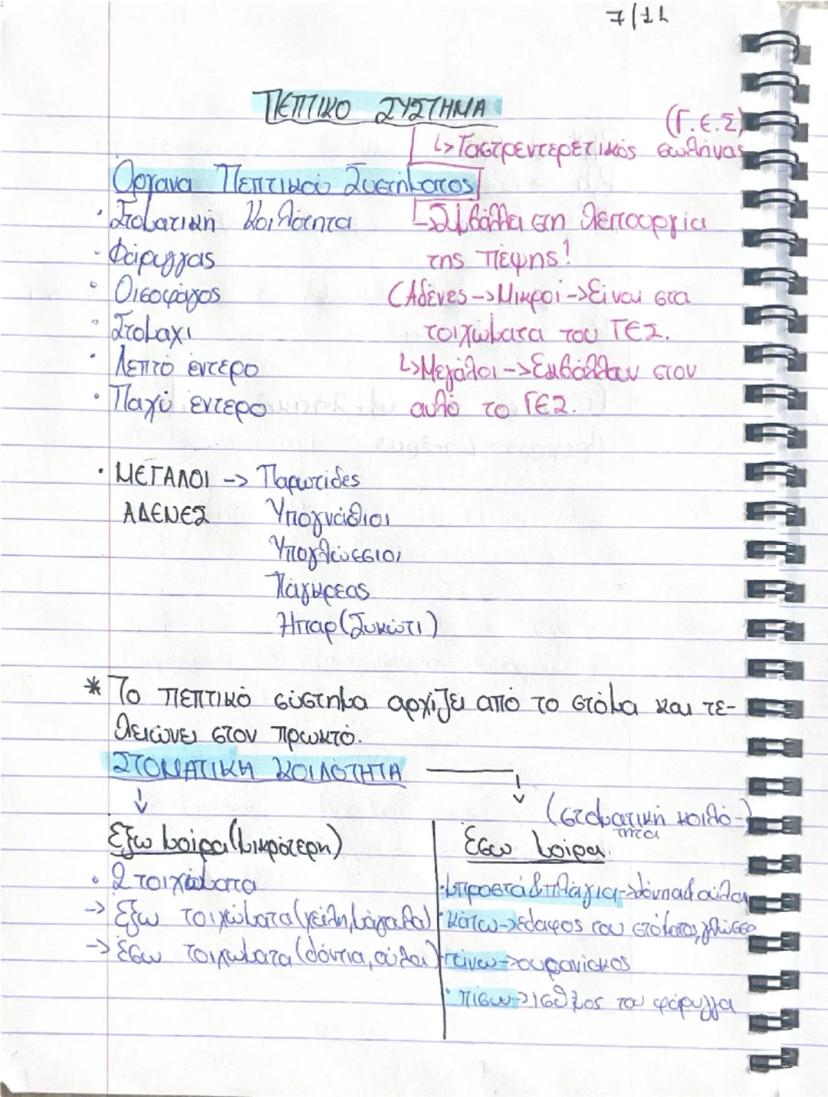 7/11
ΠΕΠΤΙΚΟ ΣΥΣΤΗΜΑ
(Γ.Ε.Σ)
↳Γαστρεντερετικός σωλήνας
Όργανα Πεπτικού Συστήματος
· Στοματική Κοιλότητα
↳Συμβάλλει στη λειτουργία
· Φάρυγγας
της πέψης!
· Οισοφάγος
(Αδένες->Μικροί->Είναι στα
· Στομάχι
τοιχώματα του ΓΕΣ.
· Λεπτό έντερο
↳Μεγάλοι->Εκβάλλουν στον
· Παχύ έντερο
αυλό το ΓΕΣ.
· ΜΕΓΑΛΟΙ -> Παρωτίδες
ΑΔΕΝΕΣ Υπογνάθιοι
Υπογλώσσιοι
Πάγκρεας
Ήπαρ(Συκώτι)
* Το πεπτικό σύστημα αρχίζει από το στόμα και τε-
λειώνει στον πρωκτό.
ΣΤΟΜΑΤΙΚΗ ΚΟΙΛΟΤΗΤΑ
(στοματική κοιλό-
τητα)
Έξω μοίρα(μικρότερη)
Έσω μοίρα.
· 2 τοιχώματα
· μπροστά & πλάγια->δόντια & ούλα
-> Έξω τοιχώματα(χείλη, μάγουλα)
· κάτω->έδαφος του στόματος, γλώσσα
-> Έσω τοιχώματα(δόντια, ούλα)
· πάνω->ουρανίσκος
· πίσω->ισθμός του φάρυγγα